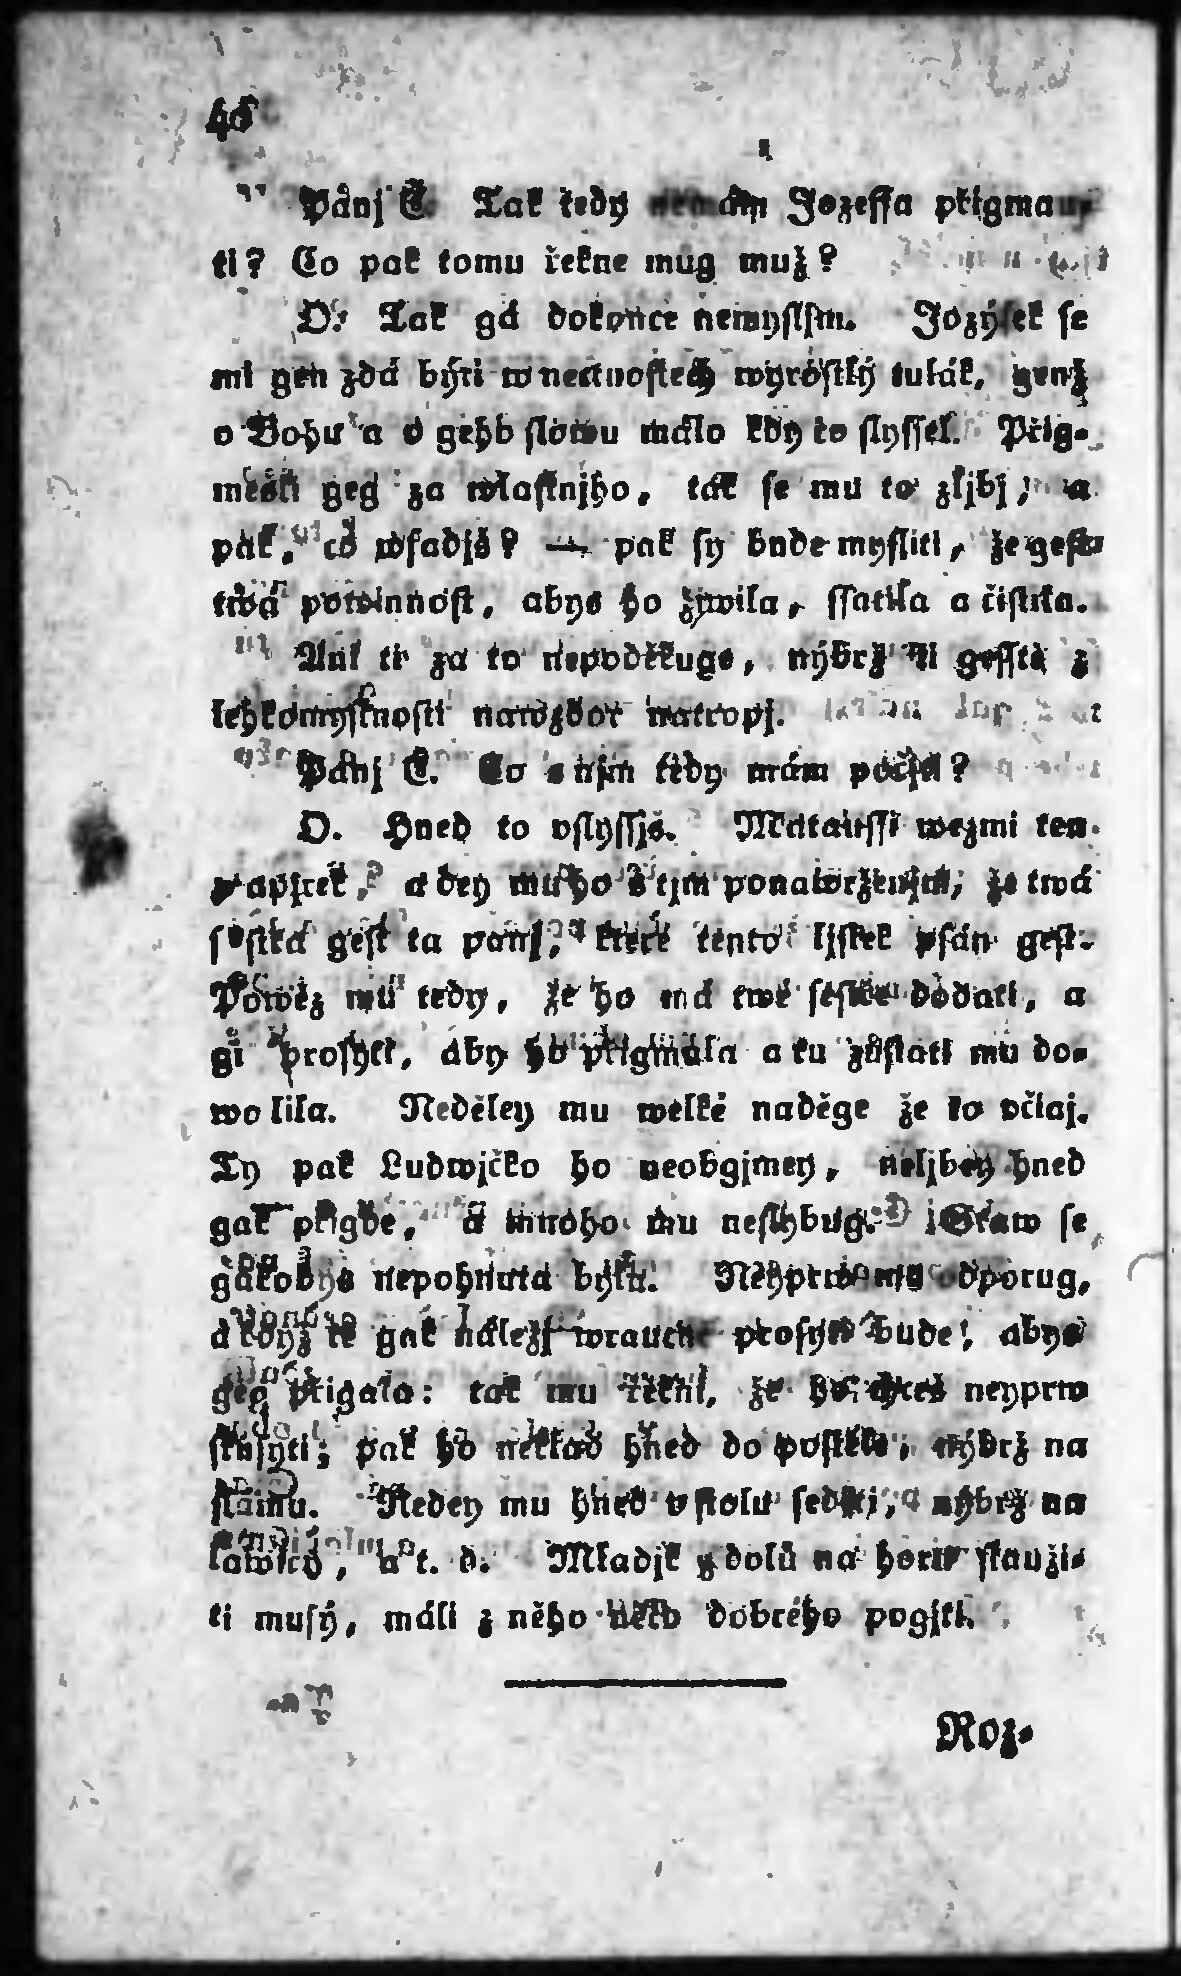 46
Panj Č. Tak tedy nemám Jozeffa přigmau-
ti? Co pak tomu řekne můg muž?
D. Tak gá dokonce nemysljm. Jozýsek se
mi gen zdá býti w nectnostech wyrostlý tulák, genž
o Bohu a o geho slowu málo kdy co slyssel. Přig-
mešli geg za wlastnjho, tak se mu to zljbj, a
pak, co wsadjš? — pak sy bude mysliti, že gest
twá powinnost, abys ho žiwila, ssatila a čistila.
Ani ti za to nepoděkuge, nýbrž ti gesstě z
lehkomyslnosti nawzdor natropj.
Panj Č. Co s njm tedy mám počjti?
D. Hned to vslyssjš. Mataussi wezmi ten
papjrek, a dey mu ho s tjm ponawrženjm, že twá
sestra gest ta panj, které tento ljstek psán gest.
Powěz mu tedy, že ho má twé sestře dodati, a
gi prosyti, aby ho přigmula a tu zůstati mu do-
wolila. Neděley mu welké naděge že to včinj.
Ty pak Ludwjčko ho neobgjmey, neljbey hned
gak přigde, a mnoho mu neslybug. Staw se
gakobys nepohnutá byla. Neyprw mu odporug,
a když tě gak náležj wraucně prosyti bude, abys
geg přigala: tak mu řekni, že ho chceš neyprw
skusyti; pak ho neklad hned do postele, nýbrž na
slámu. Nedey mu hned v stolu seděti, nýbrž na
lawicy, a t. d. Mladjk z dolů na horu slauži-
ti musý, máli z něho něco dobrého pogjti.
Roz-